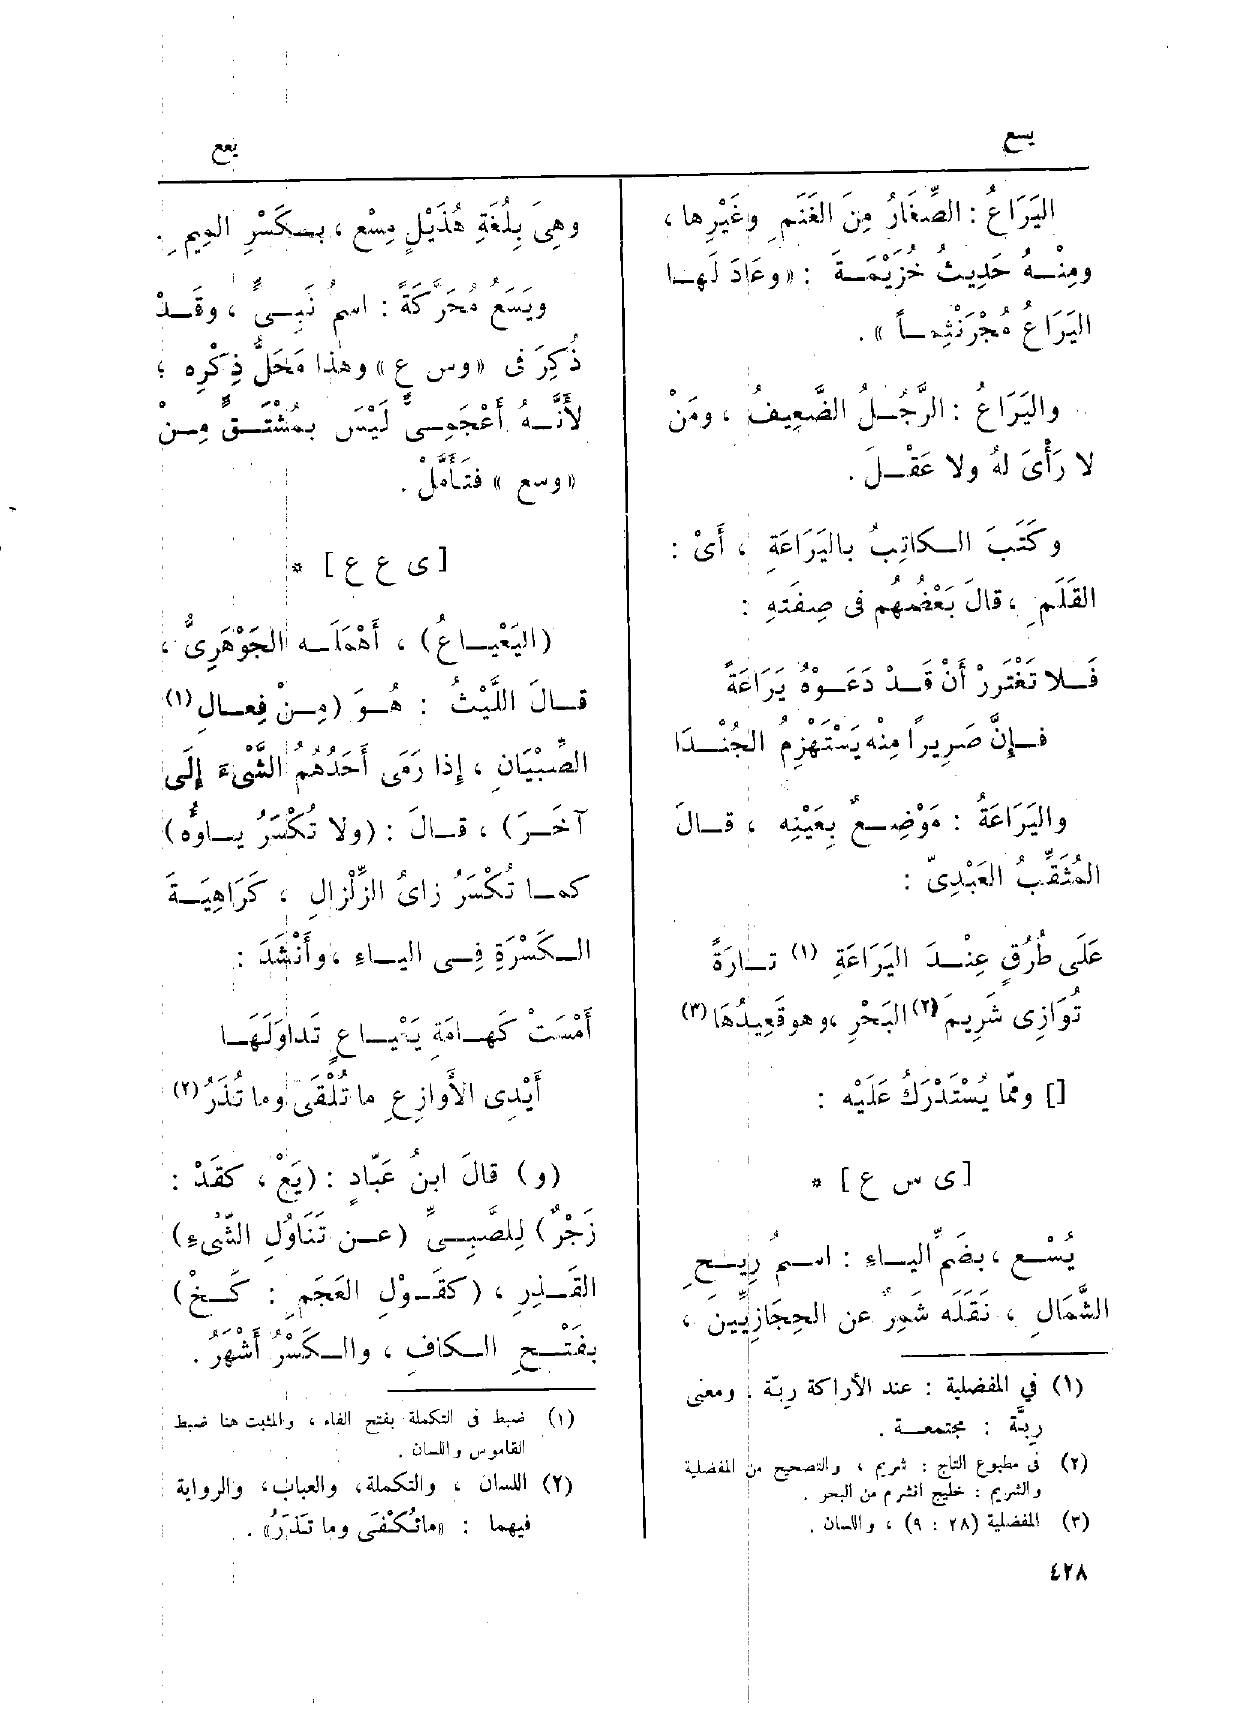 يسع
يعع
اليَرَاعُ : الصِّغَارُ مِنَ الغَنَمِ وغَيْرِها ،
ومِنْـهُ حَدِيثُ خُزَيْمَـةَ : «وعَادَ لَهـا
اليَرَاعُ مُجْرَنْثِمـاً » .
واليَرَاعُ : الرَّجُـلُ الضَّعِيفُ ، ومَنْ
لا رَأْىَ لهُ ولا عَقْـلَ .
وكَتَبَ الـكاتِبُ باليَرَاعَةِ ، أَىْ :
القَلَمِ ، قالَ بَعْضُهُم فى صِفَتهِ :
فَـلا تَغْتَرِرْ أَنْ قَـدْ دَعَـوْهُ يَرَاعَةً
فـإِنَّ صَرِيرًا مِنْه يَسْتَهْزِمُ الجُنْـدَا
واليَرَاعَةُ : مَوْضِـعٌ بِعَيْنِه ، قـالَ
المُثَقِّبُ العَبْدِىّ :
عَلَى طُرُقٍ عِنْـدَ اليَرَاعَةِ (١) تـارَةً
تُوَازِى شَرِيمَ (٢) البَحْرِ ،وهو قَعِيدُهَا (٣)
[] وممّا يُسْتَدْرَكُ عَلَيْه :
[ى س ع] *
يُسْـع ، بضَمِّ اليـاءِ : اسـمُ رِيـحِ
الشَّمَالِ ، نَقَلَه شَمِرٌ عن الحِجَازِيِّينَ ،
(١) في المفضلية : عند الأراكة ربّة . ومعنى
رِبَّة : مجتمعـة .
(٢) فى مطبوع التاج : ثريم ، والتصحيح من المفضلية
والشريم : خليج انشرم من البحر .
(٣) المفضلية (٢٨ : ٩) ، واللسان .
وهِىَ بِلُغَةِ هُذَيْلٍ مِسْع ، بـكَسْرِ الميم .
ويَسَع مُحَرَّكَةً : اسمُ نَبِـىٍّ ، وقَـدْ
ذُكِرَ فى «وس ع» وهٰذا مَحَلُّ ذِكْرِه ؛
لأَنَّـهُ أَعْجَمِـىٌّ لَيْسَ بمُشْتَـقٍّ مِـنْ
«وسع » فتَأَمَّلْ .
[ى ع ع] *
(اليَعْيـاعُ) ، أَهْمَلَـه الجَوْهَرِىُّ ،
قـالَ اللَّيْثُ : هُـوَ (مِـنْ فِعـال (١)
الصِّبْيَانِ ، إذا رَمَى أَحَدُهُم الشَّىءَ إِلَى
آخَـرَ) ، قـالَ : (ولا تُكْسَرُ يـاؤُه)
كمـا تُكْسَرُ زاىُ الزِّلْزالِ ، كَرَاهِيَـةَ
الـكَسْرَةِ فِـى اليـاءِ ،وأَنْشَدَ :
أَمْسَتْ كَهـامَةِ يَعْيـاعٍ تَداوَلَهـا
أَيْدِى الأَوازِعِ ما تُلْقَى وما تُذَرُ (٢)
(و) قالَ ابنُ عَبّادٍ : (يَعْ ، كقَدْ :
زَجْرٌ) لِلصَّبِـىِّ (عـن تَنَاوُلِ الشّىءِ)
القَـذِرِ ، (كقَـوْلِ العَجَمِ : كَـخْ)
بفَتْـحِ الـكافِ ، والـكَسْرُ أَشْهَرُ .
(١) ضبط فى التكملة بفتح الفاء ، والمثبت هنا ضبط
القاموس واللسان .
(٢) اللسان ، والتكملة، والعباب، والرواية
فيهما : «ماتُكْفَى وما تَذَرُ» .
٤٢٨